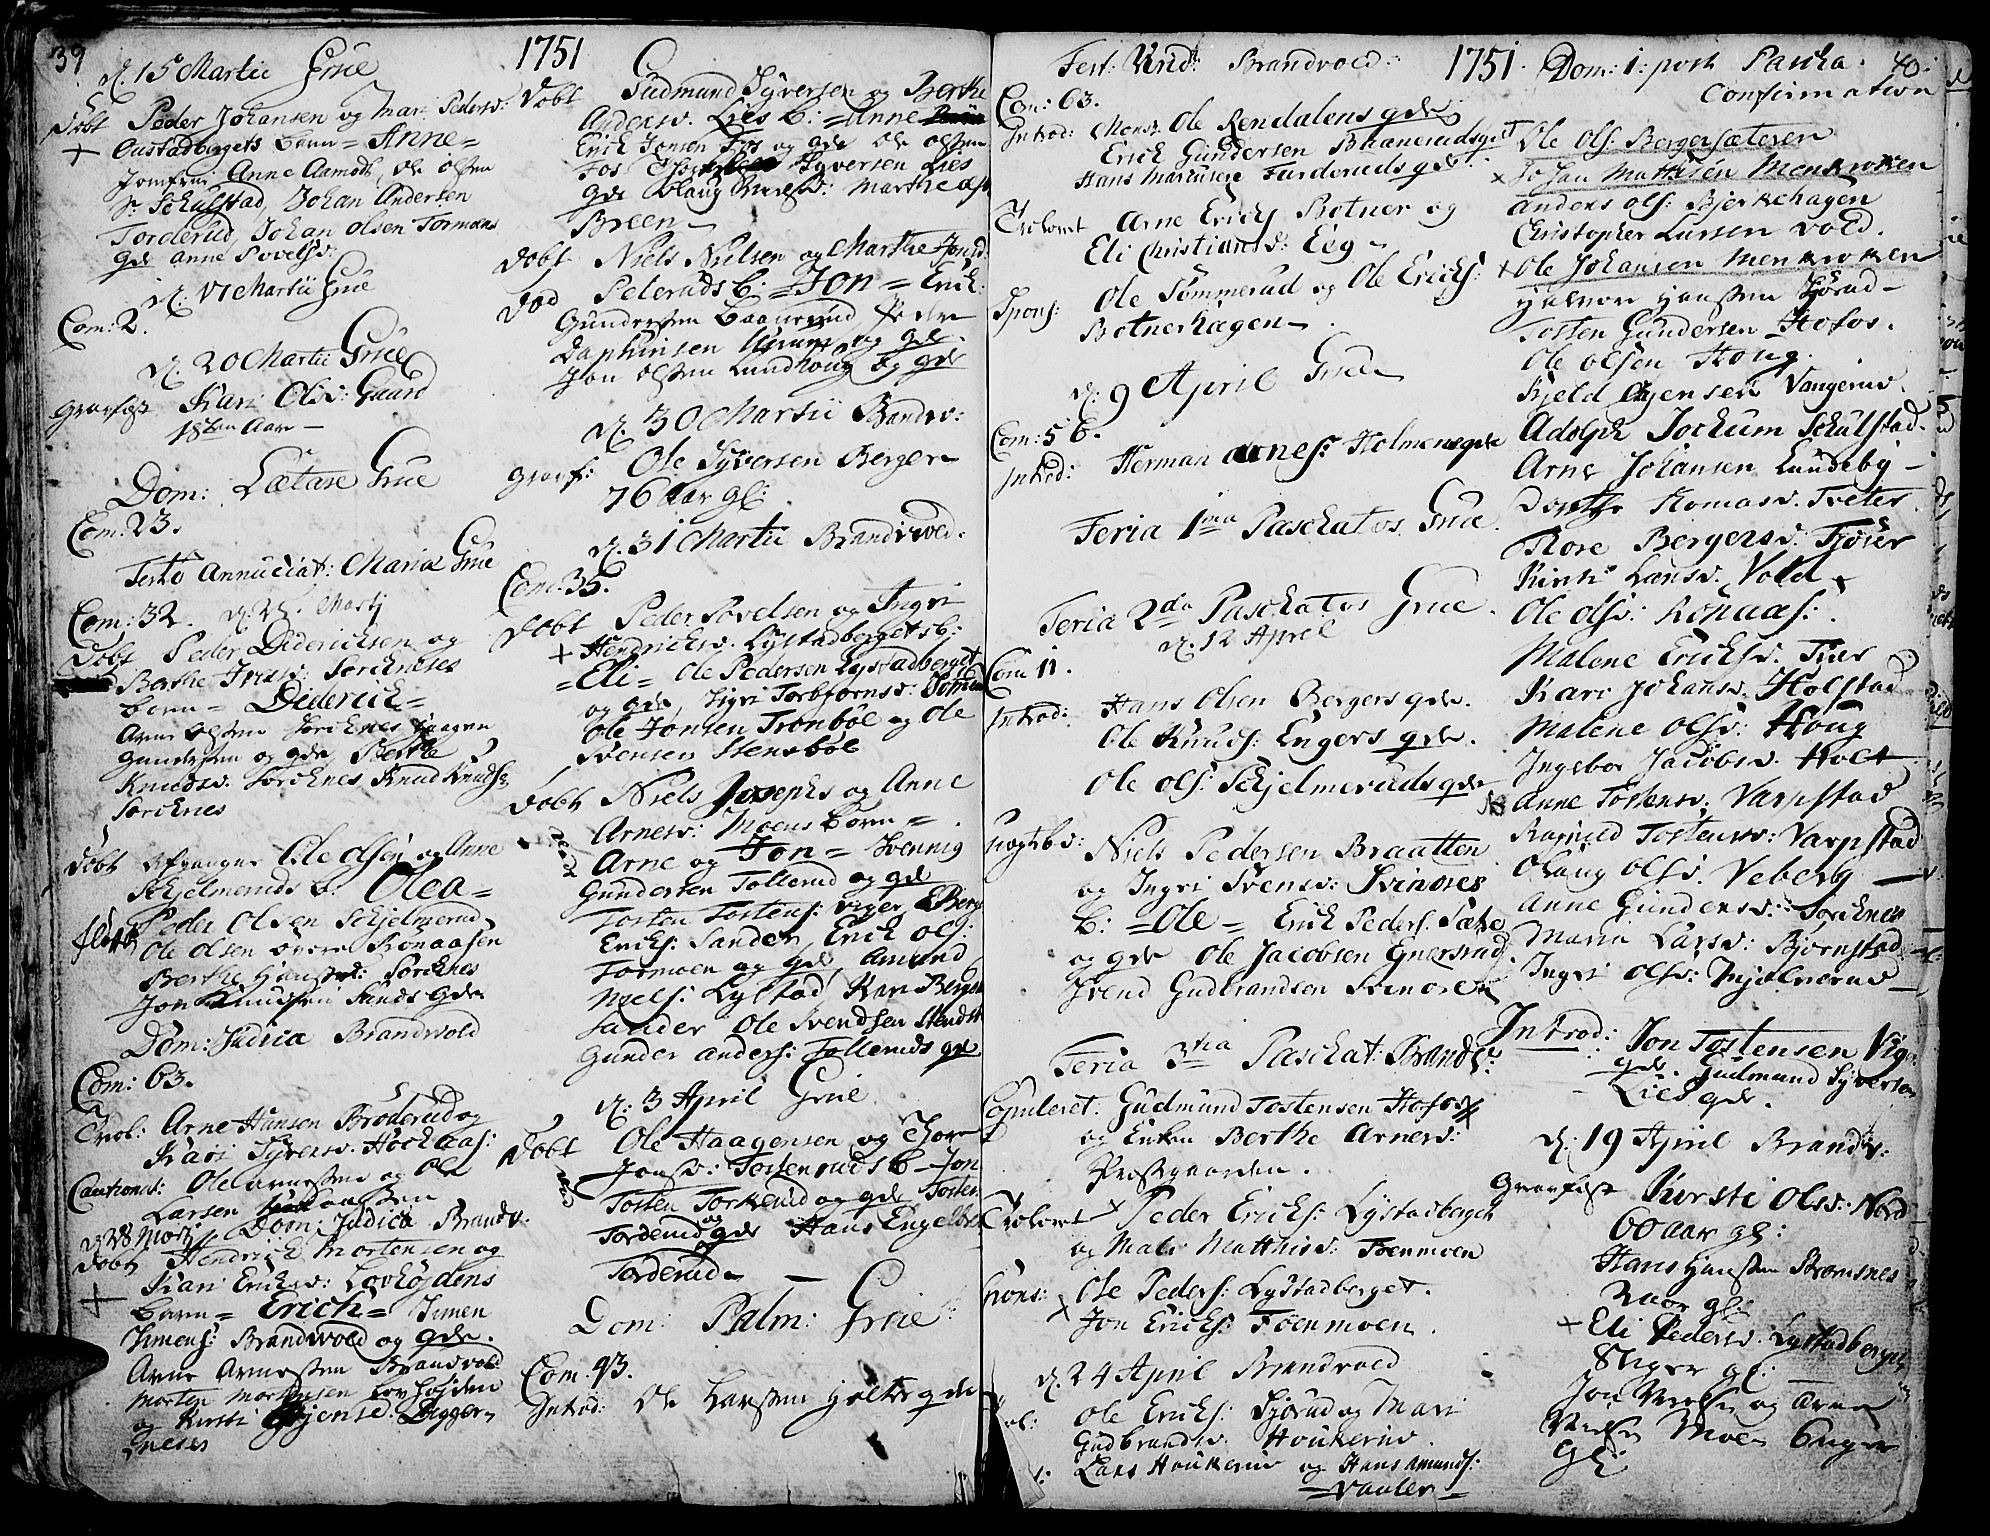 39
1751
d. 15 Martii Grue
Döbt Peder Johansen og Mari Pedersd:
Gustadbergets barn = Anne =
Jomfrue Anne Aamodt, Ole Olsen
Sr. Schulstad, Johan Andersen
Torderud, Johan Olsen Tormoens
gde Anne Povelsd:
d. 17 Martii Grue
Com: 2.
d. 20 Martii Grue
Gravfæst Kari Olsd: Gaard
18 ten Aar
Dom: Lætare Grue
Com: 23.
Festo Annuciat: Mariæ Grue
Com: 32. d. 25. Martj
Döbt Peder Diderichsen og
Berthe Iversd: Sorknes
barn = Diderich =
Arne Olsen Sorknes Haagen
Gundersen og gde Berthe
Knudsd. Sorknes Knud Knuds:
Sorknes
Döbt Ole Olsen og Anne
Schjelmeruds b: Olea =
Peder Olsen Schjelmerud
Ole Olsen övere Ronaasen
Berthe Hansd: Sorknes
Jon Knudsen Sands gde
Dom: Judica Brandvold
Com: 63.
Trol: Arne Hansen Broderud og
Kari Syversd. Hockaas:
Cautionst: Ole Arnesen og Ole
Larsen
d. 28 Martj Dom: Judica Brandv:
Döbt Hendrich Mortensen og
+ Kari Ericksd: Lovhöjdens
barn = Erich = Simen
Simens: Brandvold og gde.
Arne Arnesen Brandvold
Morten Mortensen Lovhöjden
og Kirsti Jensd: Digger-
næses
Döbt Gudmund Syversen og Berthe
Andersd. Lies b: = Anne
Erich Jonsen Fos og gde Ole Olsen
Fos Syversen Lies
gde Olaug Marthe
Breen
Döbt Niels Nielsen og Marthe Jonsd:
Död Peteruds b: = Jon = Erich
Gundersen Baanerud Peder
Daphinsen og gde
Jon Olsen Lundhoug og gde
d. 30 Martii Brandv:
Gravf: Ole Syversen Berger
76 aar gl:
d. 31 Martii Brandvold.
Com. 35.
Döbt Peder Povelsen og Ingri
+ Hendricksd. Lystadbergets b:
= Eli = Ole Pedersen Lystadberget
og gde, Sigri Torbjornsd:
Ole Jonsen Tronböl og Ole
Svensen Stenböl
Döbt Niels Josephs og Anne
Arnesd: Moens börn =
Arne og Jon = Svennig
Gundersen Tollerud og gde
Tosten Tostens: Viger
Ericks: Sander, Erick Ols:
Tormoen og gde, Amund
Niels: Lystad, Kari Berger
Sander Ole Svendsen
Gunder Anders: Tolleruds gde
d. 3 April Grue
Döbt Ole Haagensen og Thore
Jonsd: Tosteruds b - Jon
Tosten Torkerud og gde Tosten
Torderud og gde Hans
Torderud
Dom: Palm: Grue:
Com. 43.
Introd: Ole Larsen Holte gde
Fest: Virid: Brandvold:
1751.
Com: 63.
Introd: Mons: Ole Rendalens gde
Erick Gundersen Baaneruds gde
Hans Marcusens Furderuds gde
Trolovet Arne Ericks Botner og
Eli Christiansd: Eeg
Spons: Ole Sömmerud og Ole Ericks:
Botnerhagen
d. 9 April Grue
Com: 56.
Introd: Herman Arnes: Holmens gde
Feria 1ma Paschatos Grue.
Feria 2da Paschatos Grue.
d. 12 April
Com 11.
Introd: Hans Olsen Bergers gde.
Ole Knuds: Engers gde.
Ole Ols: Schjelmeruds gde
Niels Pedersen Braatten
og Ingri Svensd: Svinöses
b: = Ole = Erick Peders:
og gde Ole Jacobsen
Svend Gudbrandsen
Feria 3tia Paschat: Brandv:
Copuleret. Gudmund Tostensen Hofos
og Enken Berthe Arnesd:
Prestgaarden.
Trolovet + Peder Ericks: Lystadberget
og Mali Matthisd: Foenmoen
Spons: Ole Peders: Lystadberget.
+ Jon Ericks: Foenmoen.
d. 24 April Brandvold
Ole Ericks: Sjörud og Mari
Gudbrandsd. Houkerud.
Lars Houkerud og Hans Amunds:
= Vaaler =
Dom: 1: post Pascha.
40:
Confirmation
Ole Ols: Bergersæteren
+ Johan Mattisen Menkroken
Anders Ols: Bjerkehagen
Christopher Larsen Vold.
+ Ole Johansen Menkroken
Halvor Hansen Sjörud
Tosten Gundersen Hofos.
Ole Olsen Houg.
Kjeld Jensen Vangerud.
Adolph Jochum Schulstad.
Arne Johansen Lundeby
Dorthe Thomasd. Tveter
Thore Bergersd. Tjöser
Kirsti Larsd. Vold
Ole Olsd: Ronaas:
Malene Ericksd. Tjur
Kari Johansd. Holstad
Malene Olsd: Houg
Ingebor Jacobsd. Holt
Anne Tostensd. Varpstad
Ragnild Tostensd: Varpstad
Olaug Olsd. Veberg
Anne Gundersd: Sorknes
Maria Larsd: Bjornstad
Ingri Olsd: Mjölnerud
Introd: Jon Tostensen
gde. Gudmund Syversen
Lies gde.
d: 19 April Brandv:
Gravfæst Kirsti Olsd: Nord
60 aar gl:
Hans Hansen Stromsnes
2 aar gl:
+ Eli Pedersd: Lystadberget
8 uger gl:
Jon Nielsen og Arne
Nielsen Moen 6 uger
gl: